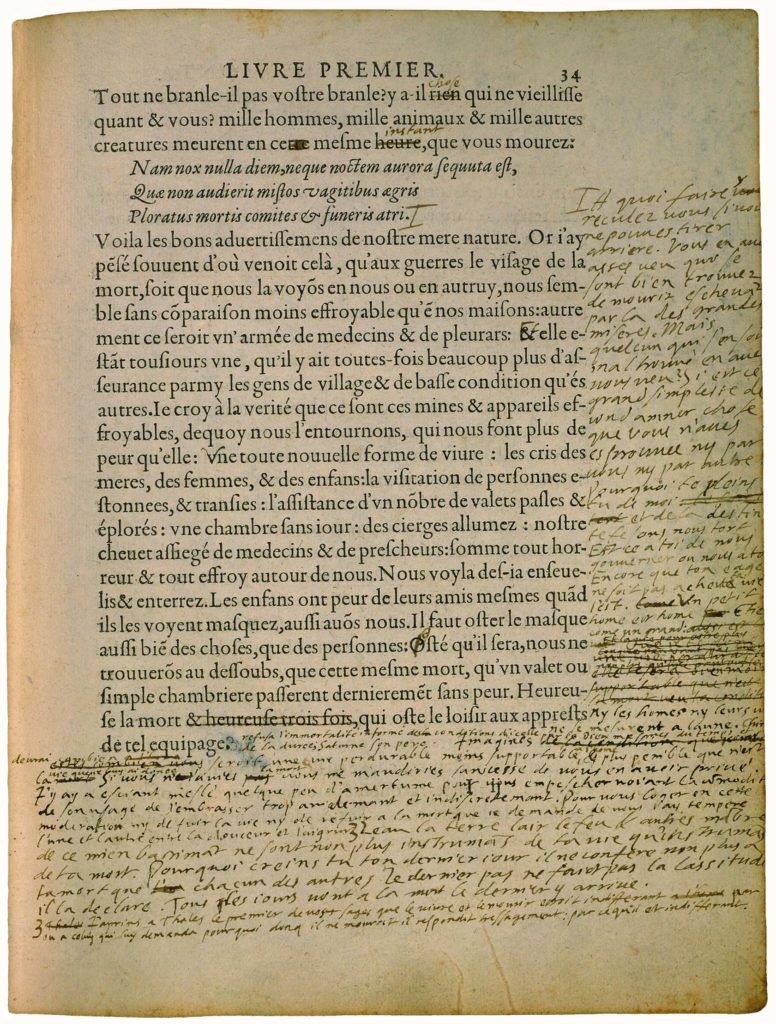 LIVRE PREMIER. 34
chose
Tout ne branle-il pas vostre branle? y a-il rien qui ne vieillisse
quant & vous? mille hommes, mille animaux & mille autres
instant
creatures meurent en ce mesme heure, que vous mourez:
Nam nox nulla diem, neque noctem aurora sequuta est,
Quæ non audierit mistos vagitibus ægris
Ploratus mortis comites & funeris atri. I
Voila les bons aduertissemens de nostre mere nature. Or i'ay
pẽsé souuent d'où venoit celà, qu'aux guerres le visage de la
mort, soit que nous la voyõs en nous ou en autruy, nous sem-
ble sans cõparaison moins effroyable qu'ẽ nos maisons: autre
ment ce seroit vn' armée de medecins & de pleurars: & elle e-
stãt tousiours vne, qu'il y ait toutes-fois beaucoup plus d'as-
seurance parmy les gens de village & de basse condition qu'és
autres. Ie croy à la verité que ce sont ces mines & appareils ef-
froyables, dequoy nous l'entournons, qui nous font plus de
peur qu'elle: Vne toute nouuelle forme de viure: les cris des
meres, des femmes, & des enfans: la visitation de personnes e-
stonnees, & transies: l'assistance d'vn nõbre de valets pasles &
éplorés: vne chambre sans iour: des cierges allumez: nostre
cheuet assiegé de medecins & de prescheurs: somme tout hor-
reur & tout effroy autour de nous. Nous voyla des-ia enseue-
lis & enterrez. Les enfans ont peur de leurs amis mesmes quãd
ils les voyent masquez, aussi auõs nous. Il faut oster le masque
aussi biẽ des choses, que des personnes: Osté qu'il sera, nous ne
trouuerõs au dessoubs, que cette mesme mort, qu'vn valet ou
simple chambriere passerent dernieremẽt sans peur. Heureu-
se la mort & heureuse trois fois, qui oste le loisir aux apprests
de tel equipage.
I A quoi faire
reculez vous si vous
ne pouves tirer
arriere. Vous en aves
asses veu qui se
sont bien trouvez
de mourir eschevat
par la des grandes
miseres. Mais
quelcun qui s'en soit
mal trouvé en aves
vous veu? si est ce
grand simplesse de
condamner chose
que vous n'aves
esprouvee ny par
vous ny par autre
Pourquoi te pleins
tu de moi
et de la destin
te fesons nous tort
Est ce a toi de nous
gouverner ou nous a toi
Encore que ton eage
ne soit pas acheve ta vie
l'est. Un petit
home est home
come un grand
ny les homes ny leurs vies
ne se mesurent a l'aune. Chiron
refusa l'immortalité informé des conditions d'icelle
par le Dieu mesmes du temps
de la duree Saturne son pere. Imagines
combien seroit une vie perdurable moins supportable & plus penible que n'est
la vie que
vous n'avies la mort vous me maudiries sans cesse de vous en avoir privé
J'y ay a esciant meslé quelque peu d'amertume pour vous empescher voiant la commodité
de son usage de l'embrasser trop avidement et indiscretement. Pour vous loger en cette
moderation ny de fuir la vie ny de refuir a la mort que je demande de vous j'ay temperé
l'une et l'autre entre la douceur et l'aigreur 3 L'eau la terre l'air le feu & autres mambres
de ce mien bastimant ne sont non plus instrumans de ta vie qu'instrumans
de ta mort. Pourquoi creins tu ton dernier jour il ne confere non plus a
ta mort que chacun des autres Le dernier pas ne faict pas la lassitude
il la declare. Tous les jours vont a la mort le dernier y arrive.
3 J'aprins a Thales le premier de vos sages que le vivre et le mourir estoit indifferant par
ou a celuy qui luy demanda pourquoi donq il ne mouroit il respondit tressagement: par ce qu'il est indifferant.